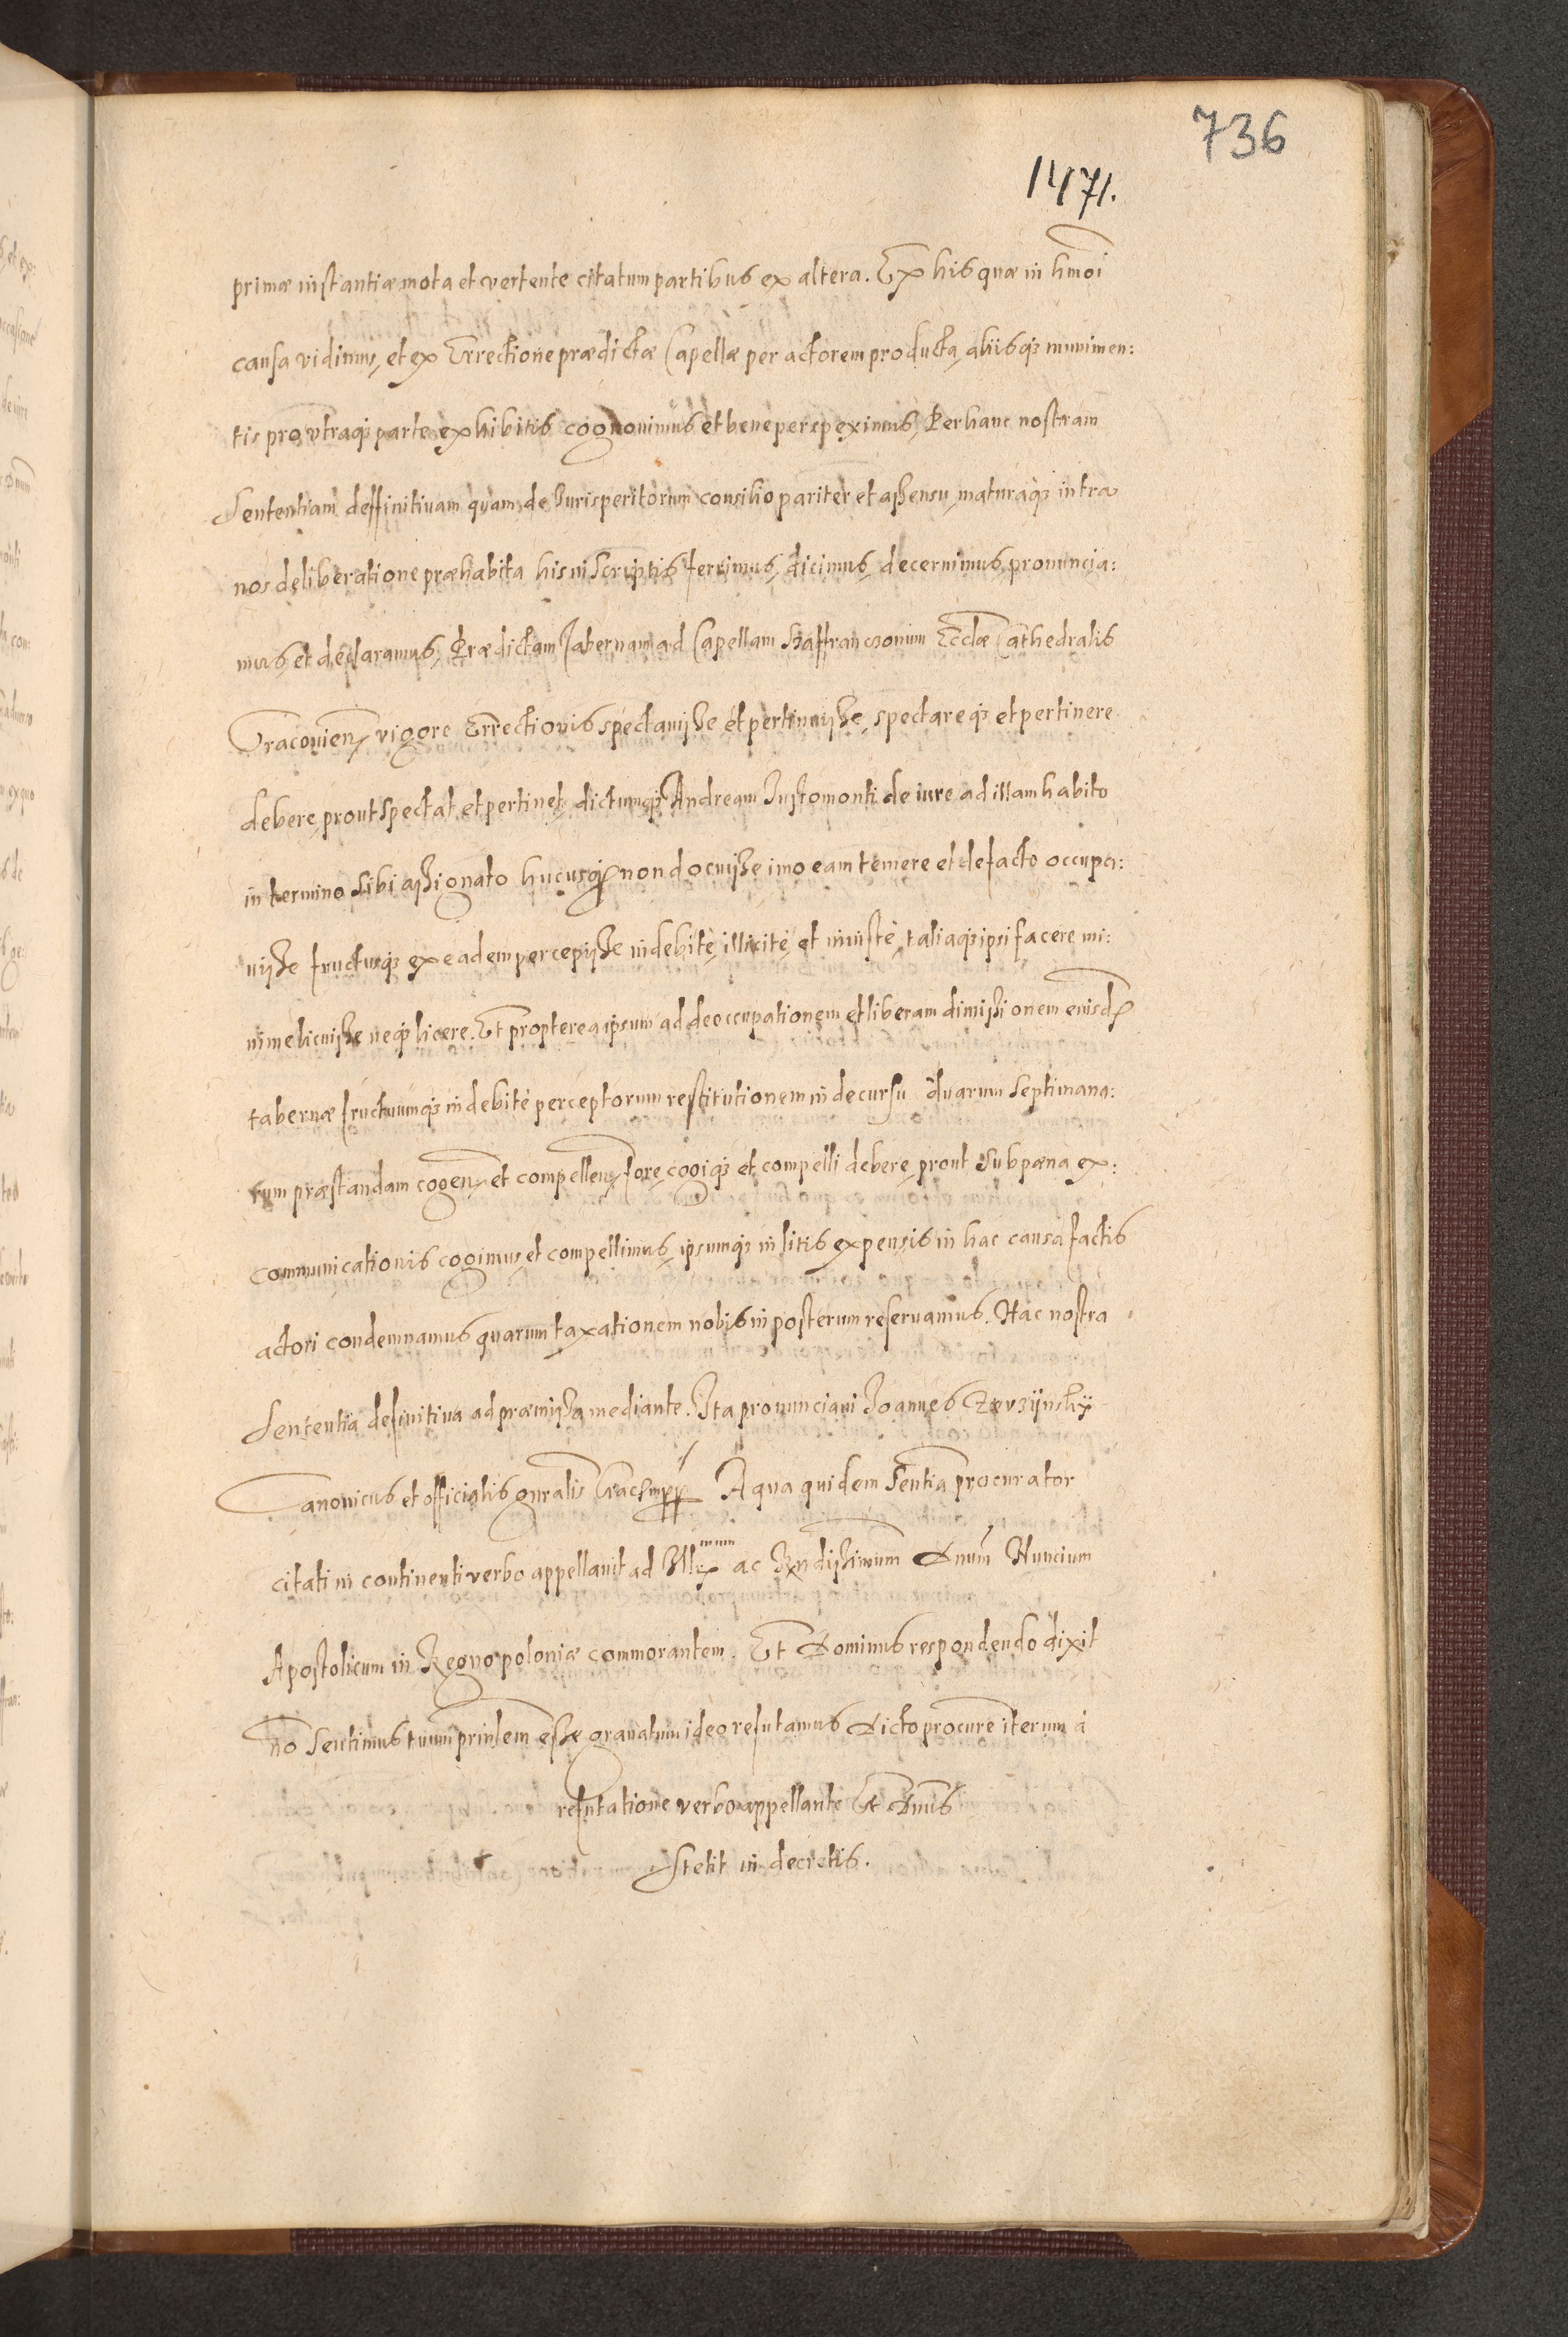 736
1471.
primæ instantiæ mota et vertente citatum partibus ex altera. Ex his quæ in hmoi
causa vidimus, et ex Errectione prædictæ Capellæ per actorem producta, aliisq3 munimen:
tis pro vtraq3 parte exhibitis cognovimus et bene perspeximus, Per hanc nostram
Sententiam deffinitivam quam de Jurisperitorum consilio pariter et assensu, maturaq3 intra
nos deliberatione præhabita his in Scriptis ferimus, dicimus, decernimus, pronuncia:
mus, et declaramus, Prædictam Tabernam ad Capellam Szaffranczonum Ecclæ Cathedralis
Cracovien, vigore Errectionis spectavisse et pertinuisse, spectareq3 et pertinere
debere, prout spectat et pertinet, dictumq3 Andream Justomonti de iure ad illam habito
in termino Sibi assignato hucusq3 non docuisse imo eam temere et de facto occupa:
uisse fructusq3 ex eadem percepisse indebitè, illicitè, et iniustè, taliaq3 ipsi facere mi:
nime licuisse neq3 licere. Et propterea ipsum ad deoccupationem et liberam dimissionem eiusd
tabernæ fructuumq3 indebitè perceptorum restitutionem in decursu duarum Septimana:
rum præstandam cogen, et compellen, fore, cogiq3 et compelli debere, prout Sub pæna ex:
communicationis cogimus, et compellimus, ipsumq3 in litis expensis in hac causa factis
actori condemnamus quarum taxationem nobis in posterum reservamus. Hac nostra
Sententia definitiva ad præmissa mediante. Ita pronunciavi Joannes
Canonicus et officialis gnralis Crac A qua quidem Sentia procurator
citati in continenti verbo appellavit ad Ill mum ac Rndissimum Dnum Nuncium
Apostolicum in Regno poloniæ commorantem. Et Dominus respondendo dixit
no Sentimus tuum prinlem esse gravatum ideo refutamus Dicto procure iterum à
refutatione verbo appellante Et Dnus
Stetit in decretis.